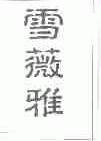 雪薇雅